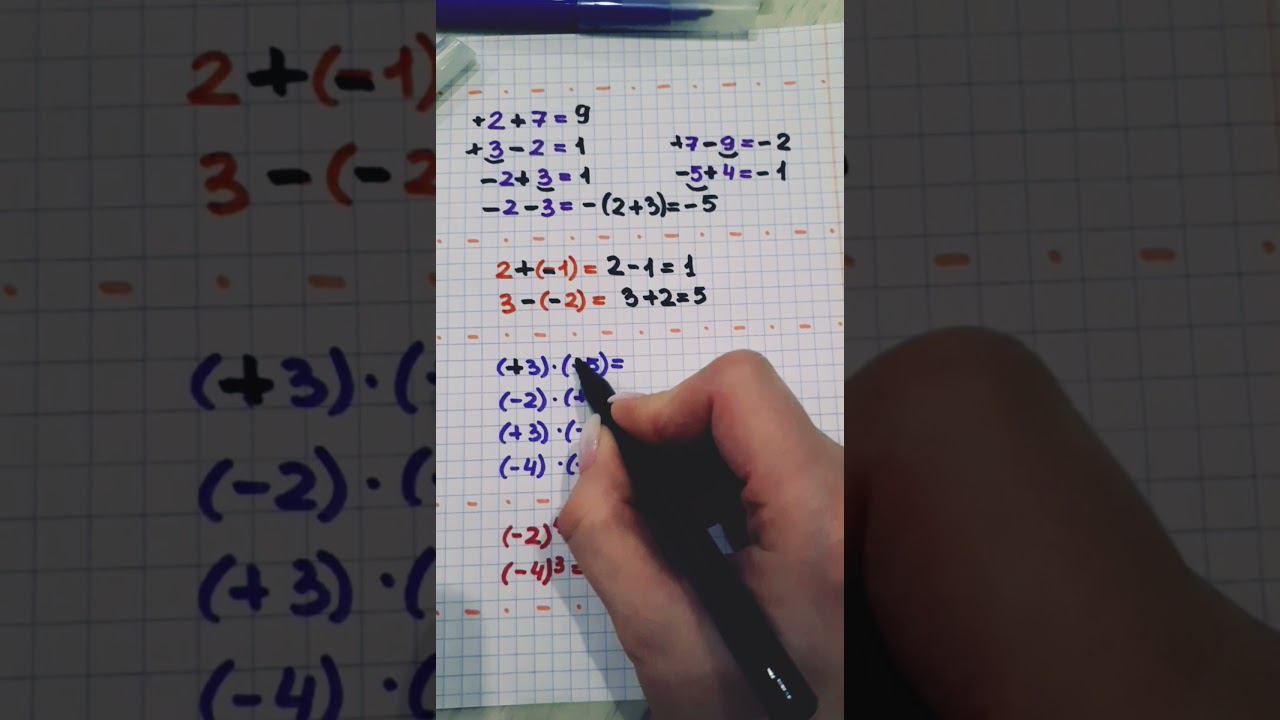 +2+7=9
+3-2=1
+7-9=-2
-2+3=1
-5+4=-1
-2-3=-(2+3)=-5
2+(-1)=2-1=1
3-(-2)=3+2=5
(+3)·(+5)=
(-2)·(+
(+3)·(-
(-4)·(
(-2)
(-4)³=